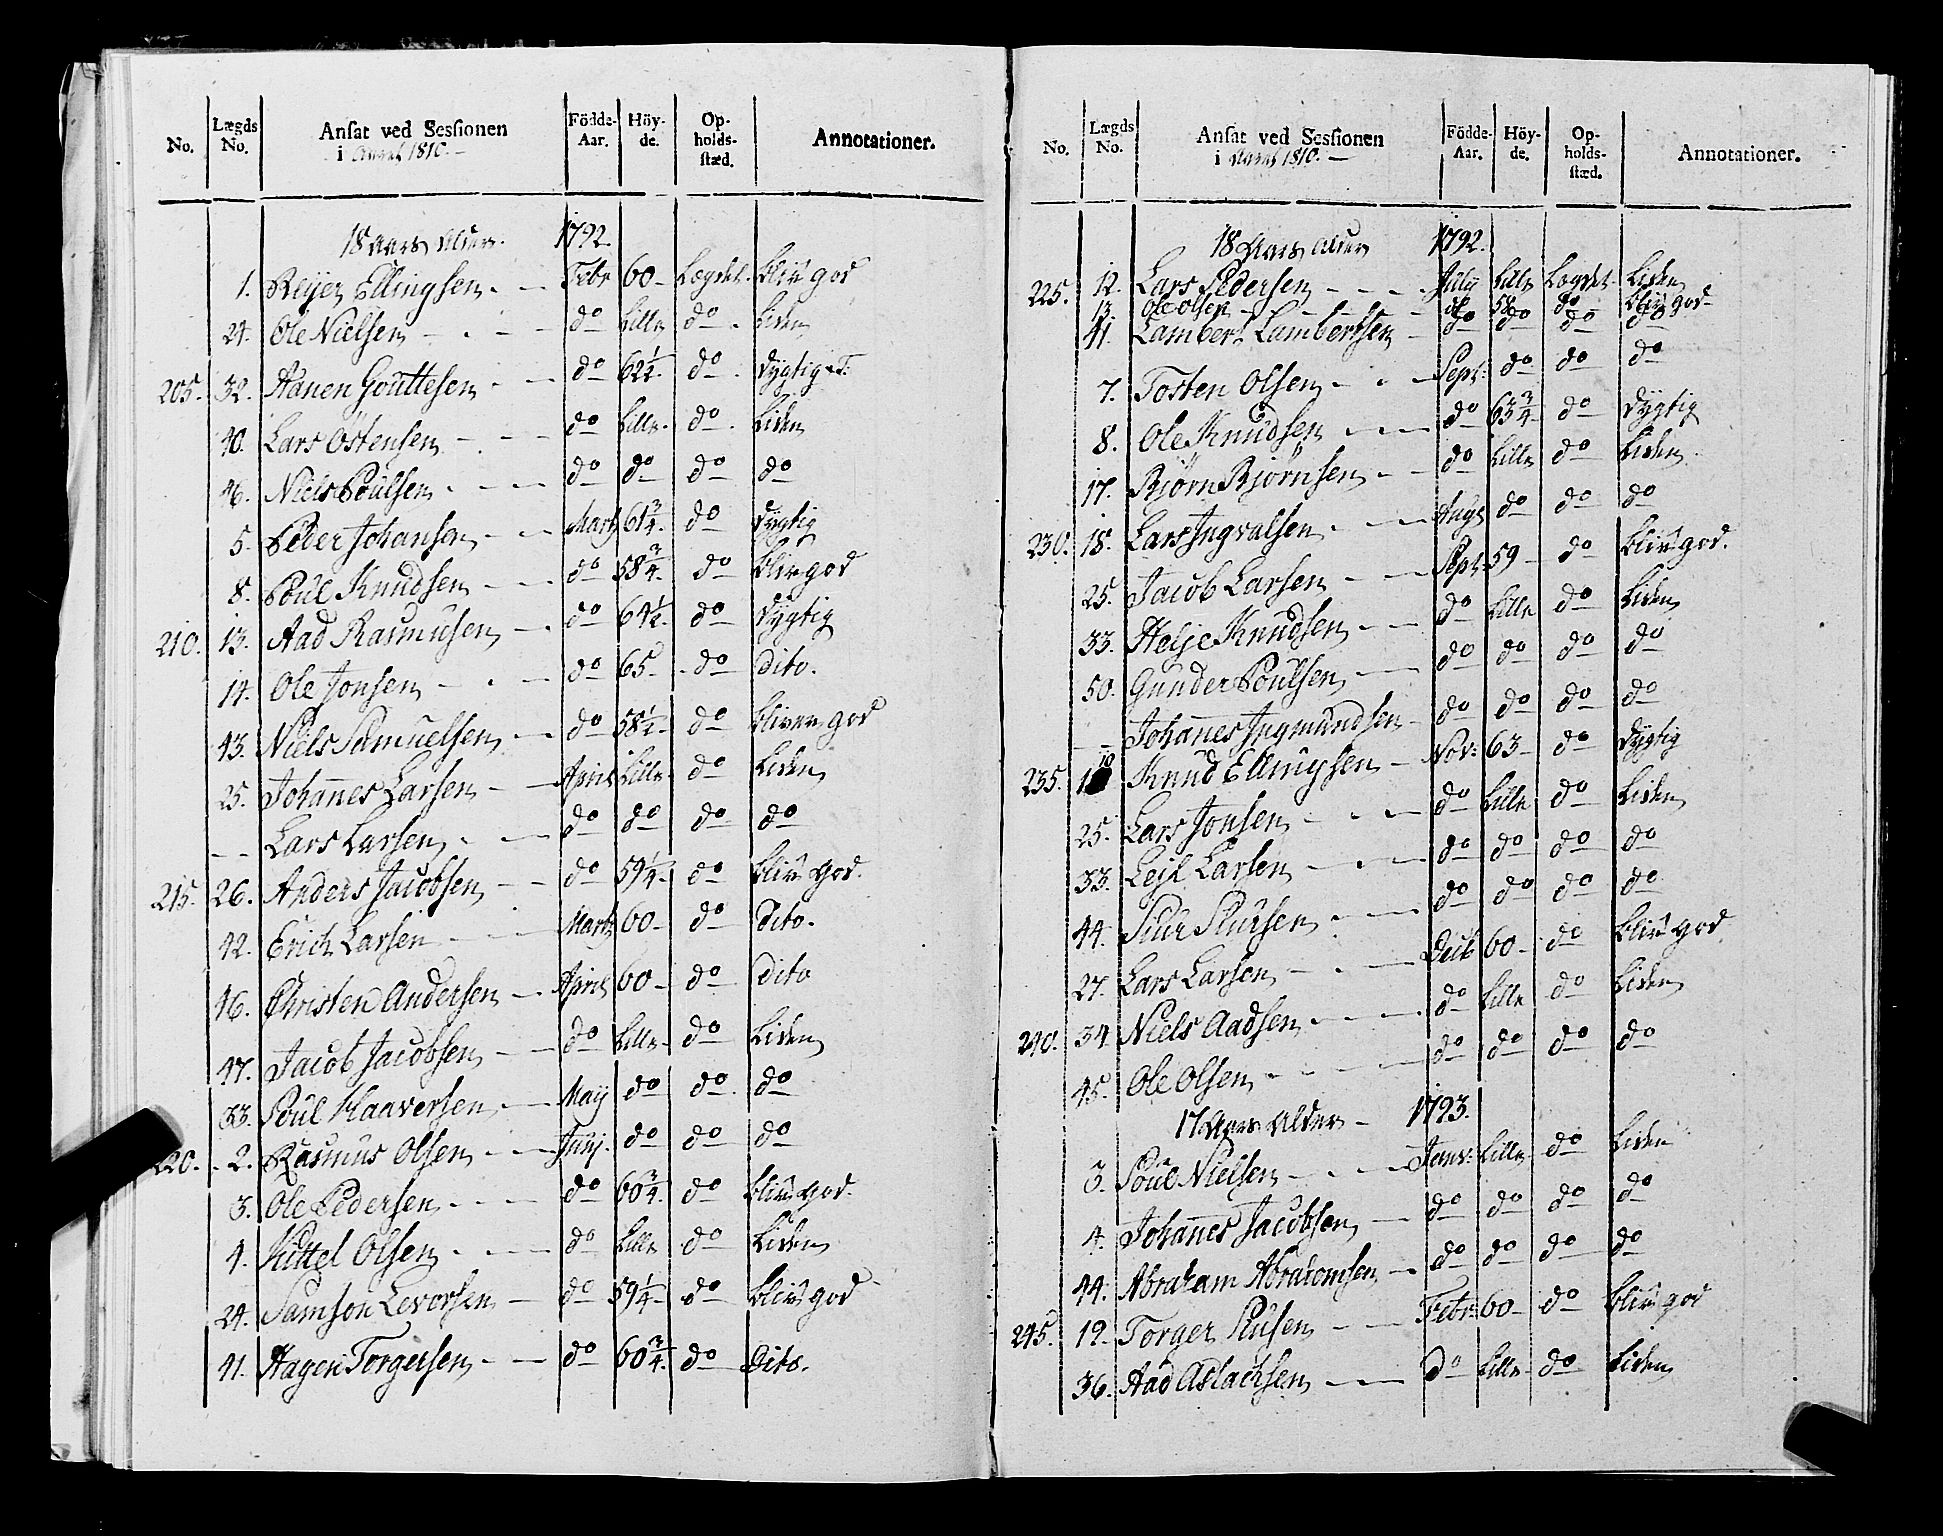 No. Lægds No. Ansat ved Sessionen i Aaret 1810. — Födde-Aar. Höy-de. Op-holds-stæd. Annotationer.
18 Aars Alder. 1792.
1. Reyer Ellingsen - — Febr 60 - Lægdet. bliv god
24. Ole Nielsen - - — do Lille do - Liden
205. 32. Aanen Gouttesen - — do 62 1/2 do - Dygtig T:
40. Lars Östensen - - — do Lille - do - Liden
46. Niels Poulsen - - — do do do do
5. Peder Johansen - — Marty 61 3/4 do Dygtig
8. Poul Knudsen - — do 58 3/4 do bliv god
210. 13. Aad Rasmusen - - do 64 1/2 do Dygtig
14. Ole Jonsen - - — do 65 - do dito.
43. Niels Samuelsen - — do 58 1/2 do bliver god
25. Johannes Larsen - — April Lille do Liden
- - Lars Larsen - — do do do do
215. 26. Anders Jacobsen - — do 59 1/4 do bliv god.
42. Erich Larsen - — Marty 60 - do dito.
46. Christen Andersen - April 60 - do dito
47. Jacob Jacobsen - — do Lille do Liden
33. Poul Haaversen - — May do do do
220. 2. Rasmus Olsen - — Junj. do do do
3. Ole Pedersen - - — do 60 3/4 do bliv god.
4. Kittel Olsen - - — do Lille do Liden
24. Samson Levorsen - do 59 1/4 do bliv god
41. Hagen Torgersen - — do 60 3/4 do Dito.
No. Lægds No. Ansat ved Sessionen i Aaret 1810. — Födde-Aar. Höy-de. Op-holds-stæd. Annotationer.
18 Aars Alder 1792.
225. 12. Lars Pedersen - - - - July Lille Lægdet. Liden
13. Ole Olsen - - - do 58 do bliv god
41. Lambert Lambertsen - do do do do
7. Tosten Olsen - - — Sept: do do do
8. Ole Knudsen - - — do 63 3/4 do Dygtig
17. Biörn Biörnsen - - do Lille do Liden
230. 18. Lars Ingvalsen - - — Augt do do do
25. Jacob Larsen - — Sept. 59 - do bliv god.
33. Helje Knudsen - — do Lille do Liden
50. Gunder Poulsen - — do do do do
- - Johannes Ingmundsen do do do do
235. 10 Knud Ellingsen - Nov: 63 - do Dygtig
25. Lars Jonsen - - — do Lille do Liden
33. Lejl Larsen - - — do do do do
44. Siur Siursen - - — do do do do
27. Lars Larsen - - — Decb 60 - do bliv god
240. 34 Niels Aadsen - - — do Lille do Liden
45. Ole Olsen - - - — do do do do
17 Aars Alder - 1793.
3. Poul Nielsen - - — Janv: Lille do Liden
4. Johannes Jacobsen - do do do do
44. Abraham Abrahamsen - do do do do
245. 19. Torger Siusen - — Febr: 60 - do bliv god
36. Aad Aslachsen - — do Lille do Liden